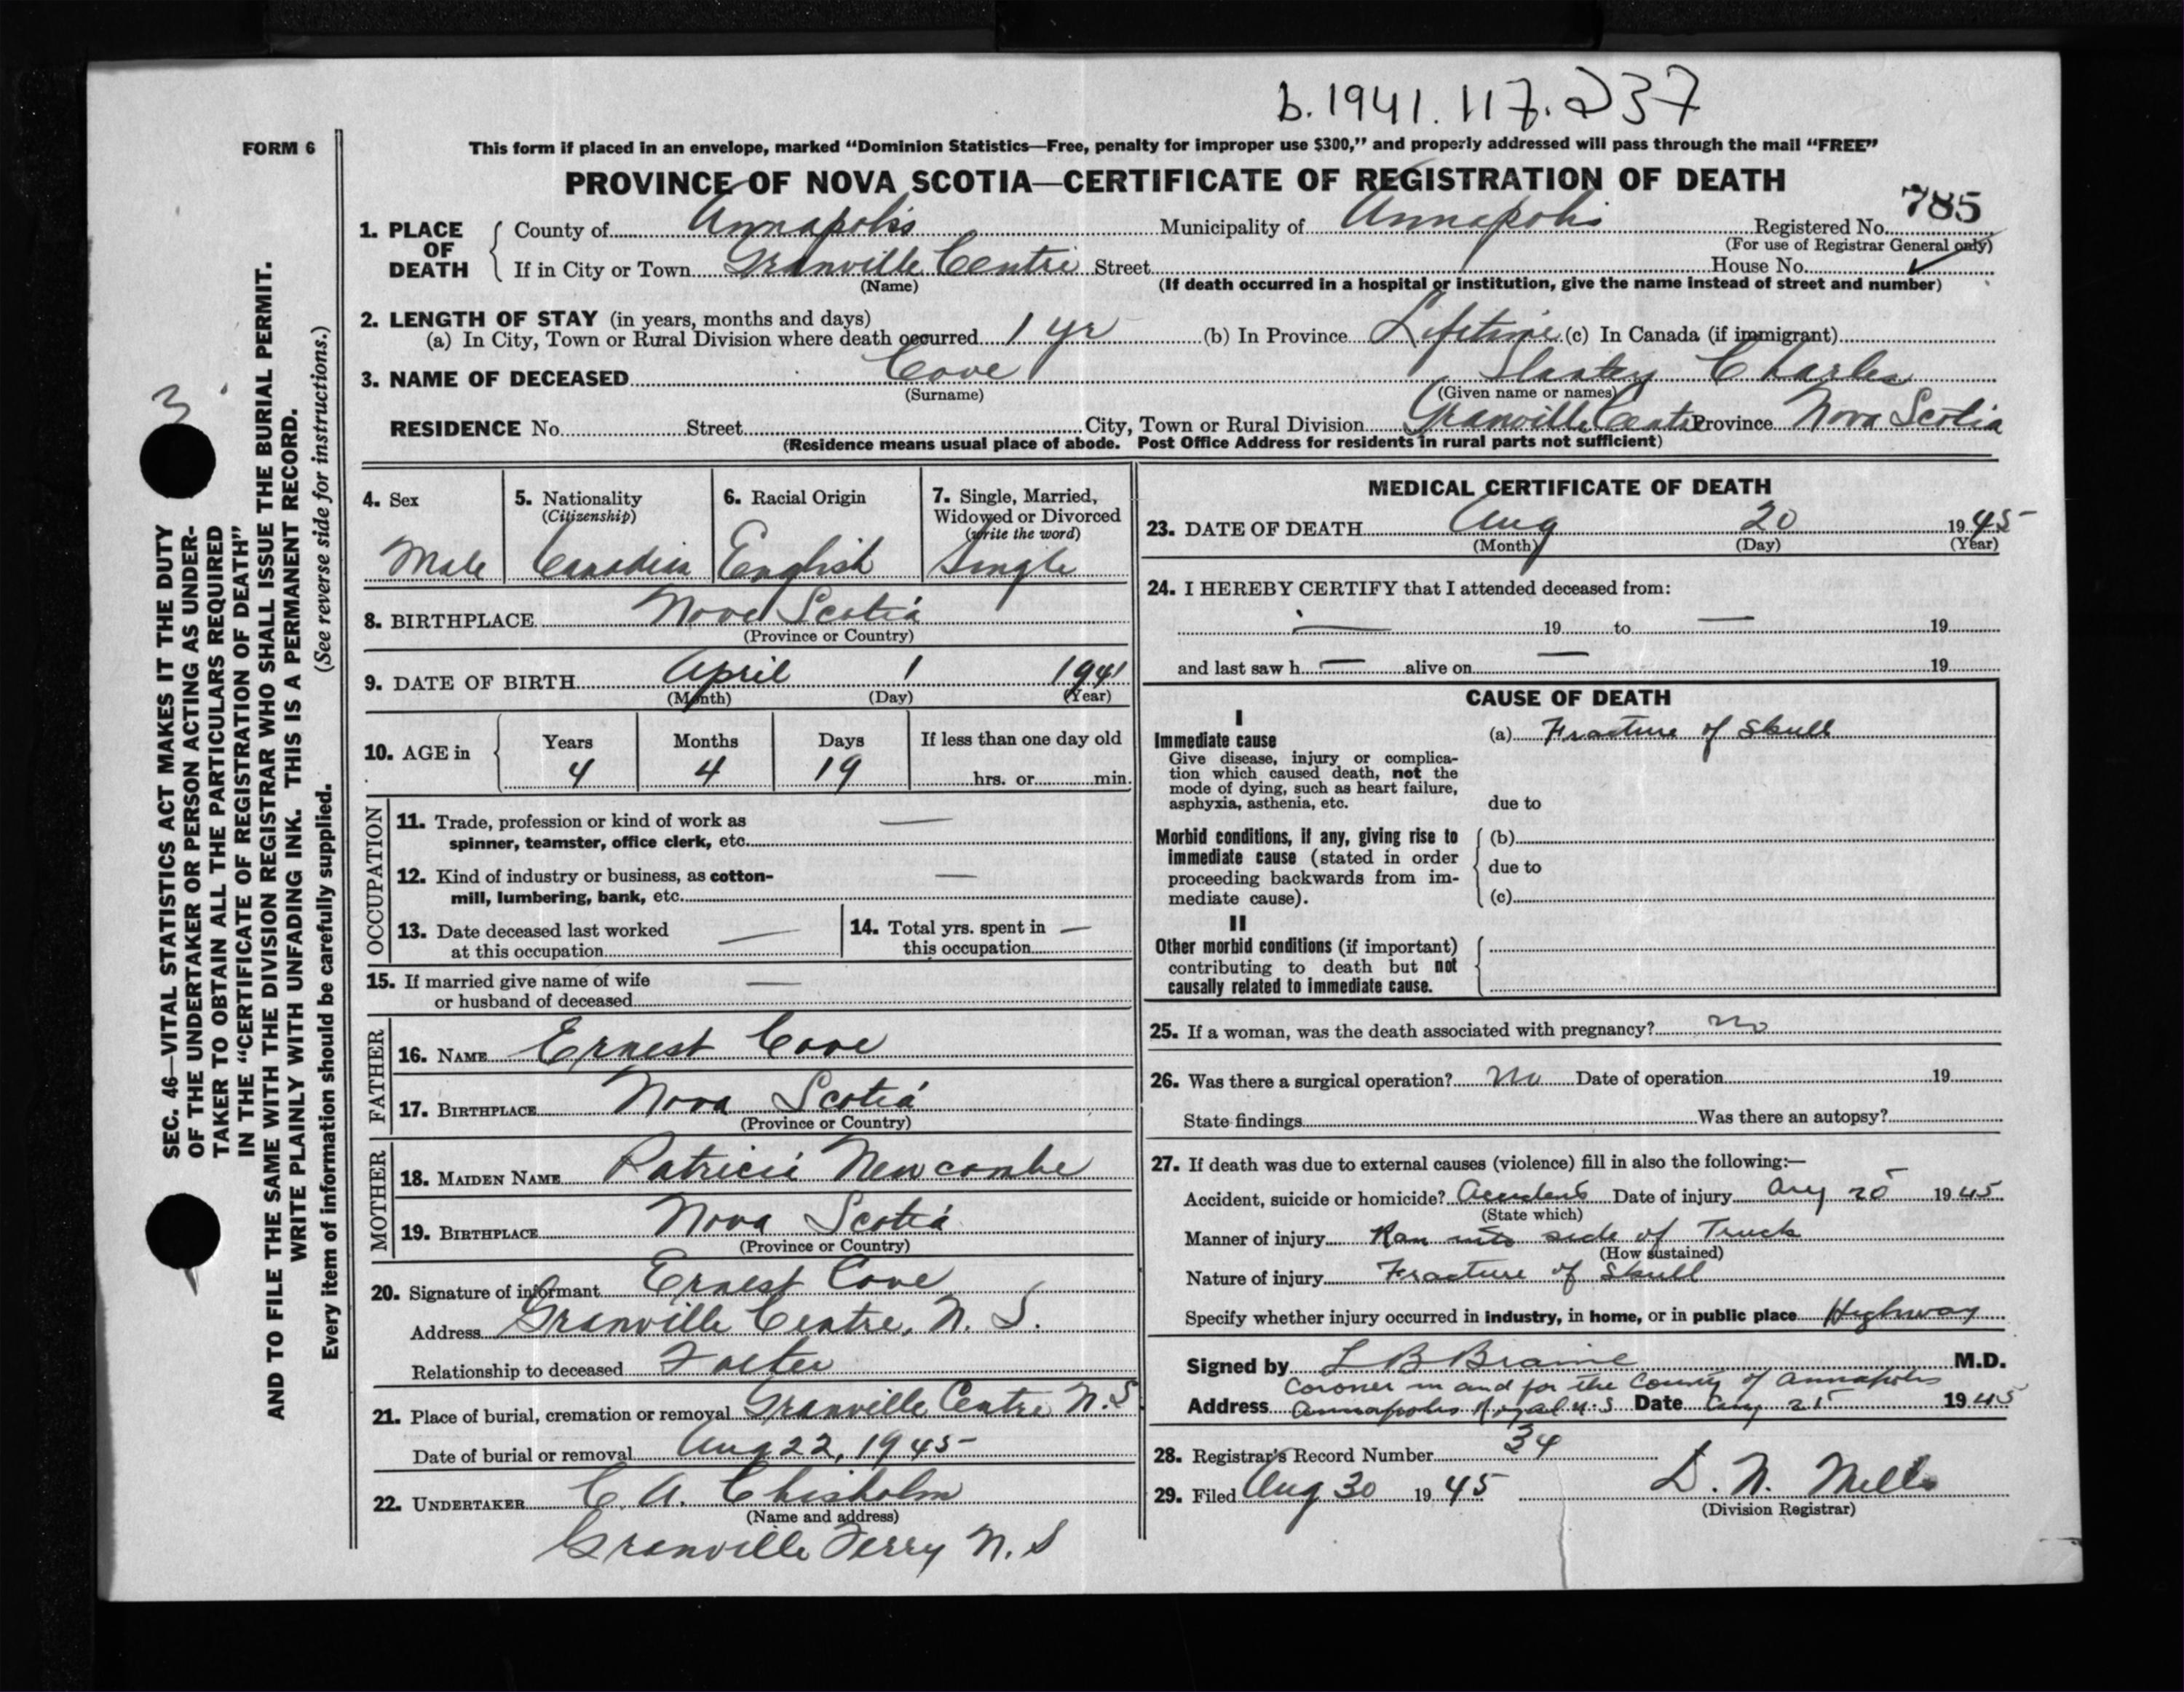 b. 1941. 117. 237
FORM 6
This form if placed in an envelope, marked "Dominion Statistics—Free, penalty for improper use $300," and properly addressed will pass through the mail "FREE"
PROVINCE OF NOVA SCOTIA—CERTIFICATE OF REGISTRATION OF DEATH
785
1. PLACE OF DEATH
County of Annapolis Municipality of Annapolis Registered No.
(For use of Registrar General only)
If in City or Town Granville Centre Street House No.
(Name) (If death occurred in a hospital or institution, give the name instead of street and number)
2. LENGTH OF STAY (in years, months and days)
(a) In City, Town or Rural Division where death occurred 1 yr (b) In Province Lifetime (c) In Canada (if immigrant)
3. NAME OF DECEASED Cove Stanley Charles
(Surname) (Given name or names)
RESIDENCE No. Street City, Town or Rural Division Granville Centre Province Nova Scotia
(Residence means usual place of abode. Post Office Address for residents in rural parts not sufficient)
3
SEC. 46—VITAL STATISTICS ACT MAKES IT THE DUTY
OF THE UNDERTAKER OR PERSON ACTING AS UNDER-
TAKER TO OBTAIN ALL THE PARTICULARS REQUIRED
IN THE "CERTIFICATE OF REGISTRATION OF DEATH"
AND TO FILE THE SAME WITH THE DIVISION REGISTRAR WHO SHALL ISSUE THE BURIAL PERMIT.
WRITE PLAINLY WITH UNFADING INK. THIS IS A PERMANENT RECORD.
Every item of information should be carefully supplied. (See reverse side for instructions.)
4. Sex
Male
5. Nationality
(Citizenship)
Canadian
6. Racial Origin
English
7. Single, Married,
Widowed or Divorced
(write the word)
Single
8. BIRTHPLACE Nova Scotia
(Province or Country)
9. DATE OF BIRTH April 1 1941
(Month) (Day) (Year)
10. AGE in
Years Months Days If less than one day old
4 4 19 hrs. or min.
OCCUPATION
11. Trade, profession or kind of work as —
spinner, teamster, office clerk, etc.
12. Kind of industry or business, as cotton- —
mill, lumbering, bank, etc.
13. Date deceased last worked —
at this occupation
14. Total yrs. spent in —
this occupation
15. If married give name of wife —
or husband of deceased
FATHER
16. NAME Ernest Cove
17. BIRTHPLACE Nova Scotia
(Province or Country)
MOTHER
18. MAIDEN NAME Patricia Newcombe
19. BIRTHPLACE Nova Scotia
(Province or Country)
20. Signature of informant Ernest Cove
Address Granville Centre, N. S.
Relationship to deceased Father
21. Place of burial, cremation or removal Granville Centre N.S
Date of burial or removal Aug 22, 1945
22. UNDERTAKER C. A. Chisholm
(Name and address)
Granville Ferry N. S
MEDICAL CERTIFICATE OF DEATH
23. DATE OF DEATH Aug 20 1945
(Month) (Day) (Year)
24. I HEREBY CERTIFY that I attended deceased from:
— 19 to — 19
and last saw h — alive on — 19
CAUSE OF DEATH
I
Immediate cause
Give disease, injury or complica-
tion which caused death, not the
mode of dying, such as heart failure,
asphyxia, asthenia, etc.
(a) Fracture of Skull
due to
Morbid conditions, if any, giving rise to
immediate cause (stated in order
proceeding backwards from im-
mediate cause).
(b)
due to
(c)
II
Other morbid conditions (if important)
contributing to death but not
causally related to immediate cause.
25. If a woman, was the death associated with pregnancy? no
26. Was there a surgical operation? no Date of operation 19
State findings Was there an autopsy?
27. If death was due to external causes (violence) fill in also the following:—
Accident, suicide or homicide? Accident Date of injury Aug 20 1945
(State which)
Manner of injury Ran into side of Truck
(How sustained)
Nature of injury Fracture of Skull
Specify whether injury occurred in industry, in home, or in public place Highway
Signed by L B Braine M.D.
Coroner in and for the County of Annapolis
Address Annapolis Royal N.S Date Aug 1945
28. Registrar's Record Number 34
29. Filed Aug 30 1945 D. N. Mills
(Division Registrar)